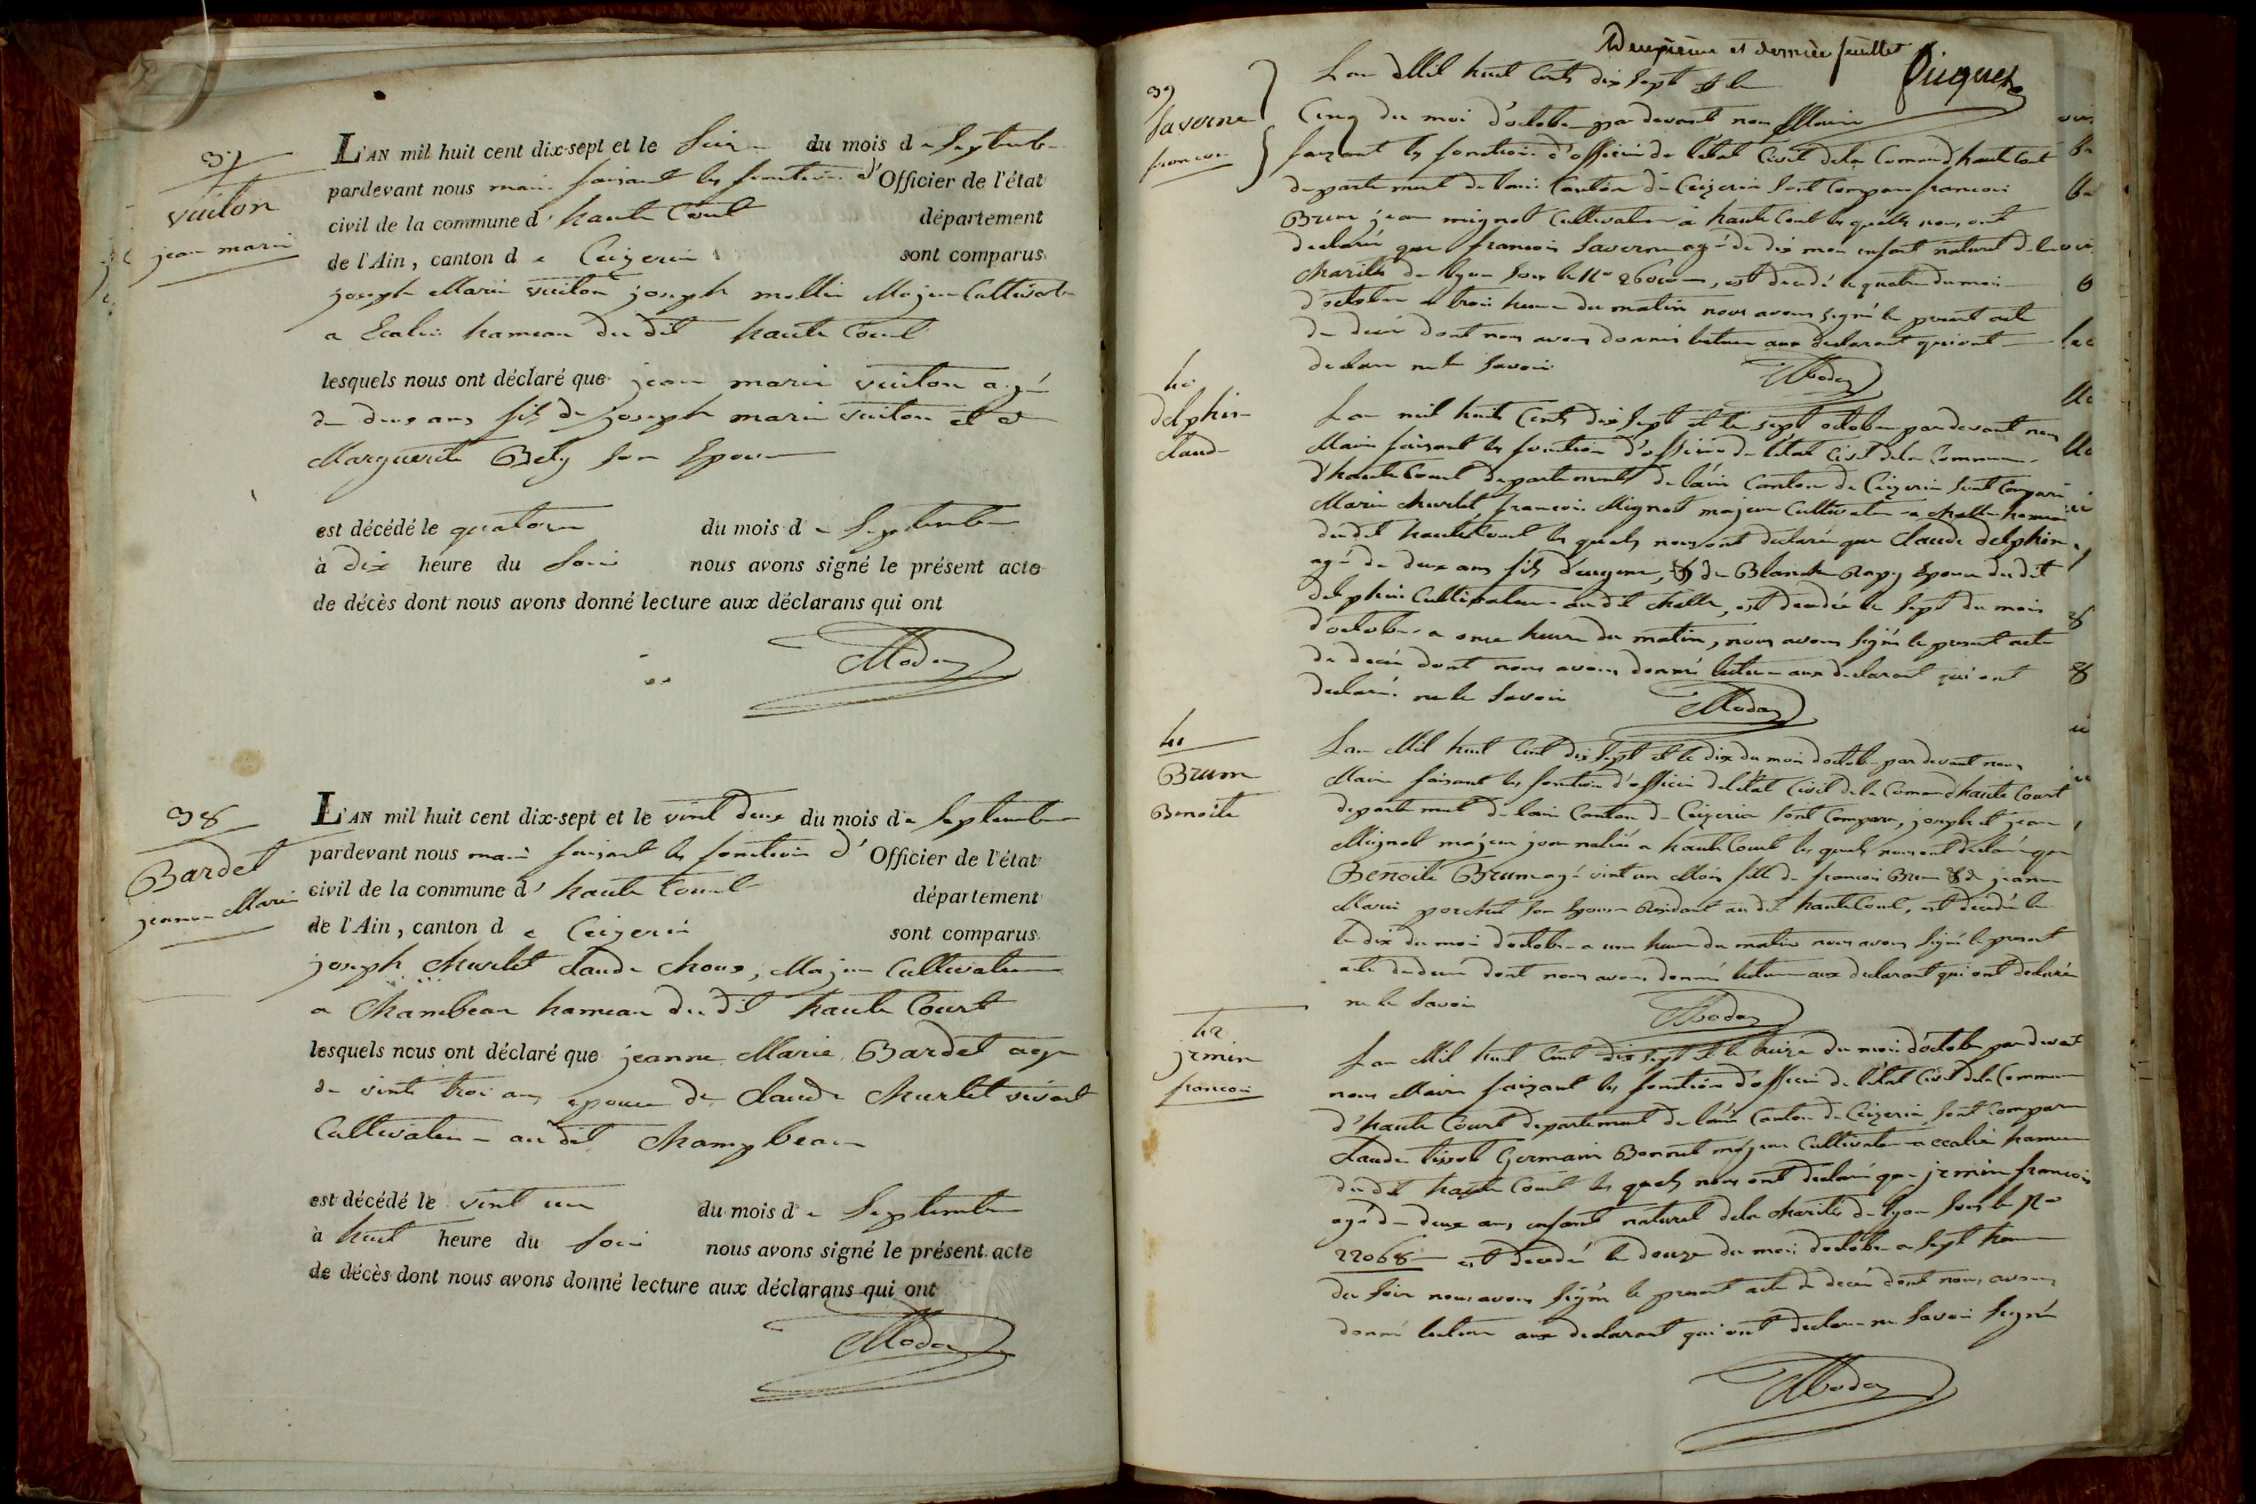 37
vuiton
jean marie
L'AN mil huit cent dix-sept et le du mois de Septembre
pardevant nous maire faisant les fonction d'Officier de l'état
civil de la commune d'haute Court département
de l'Ain, canton de Ceizeria sont comparus
joseph Marie vuiton joseph mollie Majeur Cultivateur
a hameau du dit haute Court
lesquels nous ont déclaré que jean marie vuiton agé
de deux ans fils de joseph marie vuiton et de
Marguerite Bely son Epouse
est décédé le quatorze du mois de Septembre
à dix heure du Soir nous avons signé le présent acte
de décès dont nous avons donné lecture aux déclarans qui ont
38
Bardet
jeanne Marie
L'AN mil huit cent dix-sept et le vint deux du mois de Septembre
pardevant nous maire faisant les fonction d'Officier de l'état
civil de la commune d'haute Court département
de l'Ain, canton de Ceizeria sont comparus
joseph Churlet Claude Chous, Majeur Cultivateur
a Chambeau hameau du dit haute Court
lesquels nous ont déclaré que jeanne Marie Bardet age
de vint troi ans epouse de Claude Churlet vivant
Cultivateur au dit Champbeau
est décédé le vint un du mois de Septembre
à huit heure du Soir nous avons signé le présent acte
de décès dont nous avons donné lecture aux déclarans qui ont
Deuxième et dernier feuillet
39
Saverne
francois
L an Mil huit Cents dix Sept et le
Cinq du moi d'octobre par devant nous Maire
faizant les fonction d'officier de l'état Civil de la Comune d haute Court
departement de lain Canton de Ceizeria Sont Comparu francois
Brun jean mignot Cultivateur a haute Court les quels nous ont
declaré que francois Saverne agé de dix mois enfant naturel de la
charité de lyon Sous le No 260 , est decedé le quatre du moi
d'octobre a trois heure du matin nous avons signé le present acte
de deces dont nous avons donné lecture aux declarant qui ont
declare ne le Savoir
40
delphin
Claude
L an mil huit Cents dix Sept et le sept octobre par devant nous
Maire faisant les fonction d'officier de l'état Civil de la Commune
d'haute Court departement de lain Canton de Ceizeria Sont Comparu
Marie Churlet, francois Mignot majeur Cultivateur a Challe hameau
du dit haute Court les quels nous ont declaré que Claude delphin
agé de deux ans fils d'eugene, & de Blanche Rapy Epouse du dit
delphin Cultivateur au dit Challe, est decedé le Sept du mois
d'octobre a onze heure du matin, nous avons Signé le present acte
de deces dont nous avons donné lecture aux declarant qui ont
declaré ne le Savoir
41
Brun
Benoite
L an Mil huit Cent dix Sept et le dix du moi doctobre par devant nous
Maire faisant les fonction d'officier de l'état Civil de la Comune d haute Court
departement de lain Canton de Ceizeria Sont Comparu, joseph et jean
Mignot majeur journalié a haute Court les quels nous ont declaré que
Benoite Brun agé vint un Mois fille de francois Brun & de jeanne
Marie porchet Son Epouse Residant au dit haute Court, est decedée le
le dix du moi doctobre a une heure du matin nous avons Signé le present
acte de deces dont nous avons donné lecture aux declarant qui ont declaré
ne le Savoir
42
jemin
francois
L an Mil huit Cent dix Sept et le treize du moi d'octobre par devant
nous Maire faizant les fonction d'officier de l'état Civil de la Commune
d'haute Court departement de lain Canton de Ceizeria Sont Comparu
Claude tissot Germain Bonnet majeur Cultivateur a hameau
du dit haute Court les quels nous ont declaré que jemin francois
agé de deux ans enfant naturel de la charité de lyon Sous le No
22068 est decedé le douze du moi doctobre a Sept heure
du Soir nous avons Signé le present acte de deces dont nous avons
donné lecture aux declarant qui ont declare ne Savoir Signé